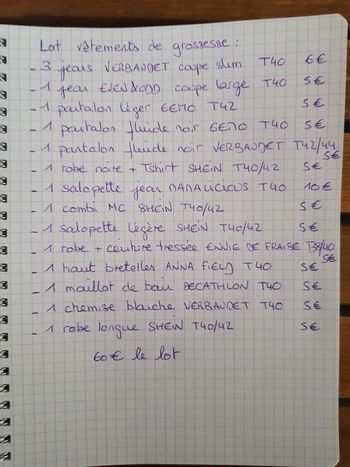 Lot vêtements de grossesse :
- 3 jeans VERBAUDET coupe slim T40 6€
- 1 jean EVEN&ODD coupe large T40 5€
- 1 pantalon léger GEMO T42 5€
- 1 pantalon fluide noir GEMO T40 5€
- 1 pantalon fluide noir VERBAUDET T42/44 5€
- 1 robe noire + Tshirt SHEIN T40/42 5€
- 1 salopette jean MAMALICIOUS T40 10€
- 1 combi MC SHEIN T40/42 5€
- 1 salopette légère SHEIN T40/42 5€
- 1 robe + ceinture tressée ENVIE DE FRAISE T38/40 5€
- 1 haut bretelles ANNA FIELD T40 5€
- 1 maillot de bain DECATHLON T40 5€
- 1 chemise blanche VERBAUDET T40 5€
- 1 robe longue SHEIN T40/42 5€
60€ le lot